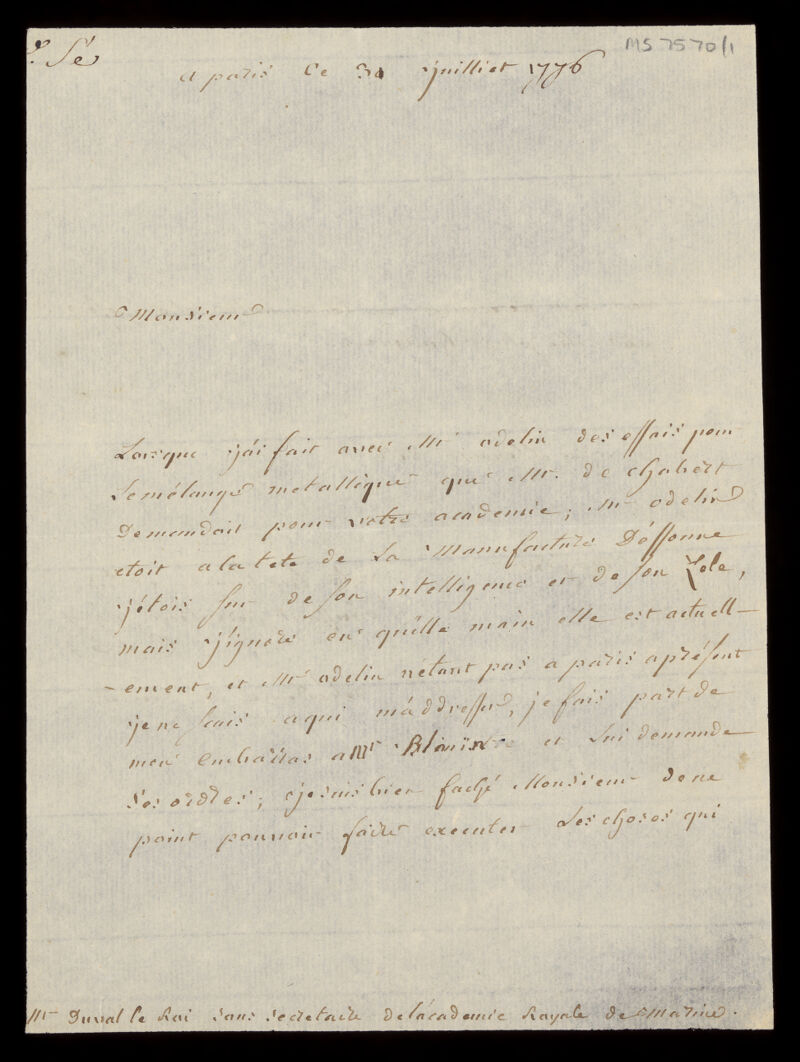 MS 7570/1
Sé
a paris Ce 30 juilliet 1776
Monsieur
Lorsque j'ai fait avec Mr. odelin des essais pour
Le mélange metallique que Mr. de chabert
Demandoit pour votre academie; Mr odelin
etoit a la tete de La Manufacture D'éssonne
j'étois sur de son intelligence et de son Zele,
mais j'ignore en quélle main elle est actuell-
-ement, et Mr odelin nétant pas a paris aprésent
je ne sais aqui m'áddresser, je fais part de
mon Embarras a Mr Blouin et Lui demande
ses ordres; je suis bien faché Monsieur de ne
point pouvoir faire executer Les choses qui
Mr Duval le Roi sous secretaire de l'académie Royale de marine.